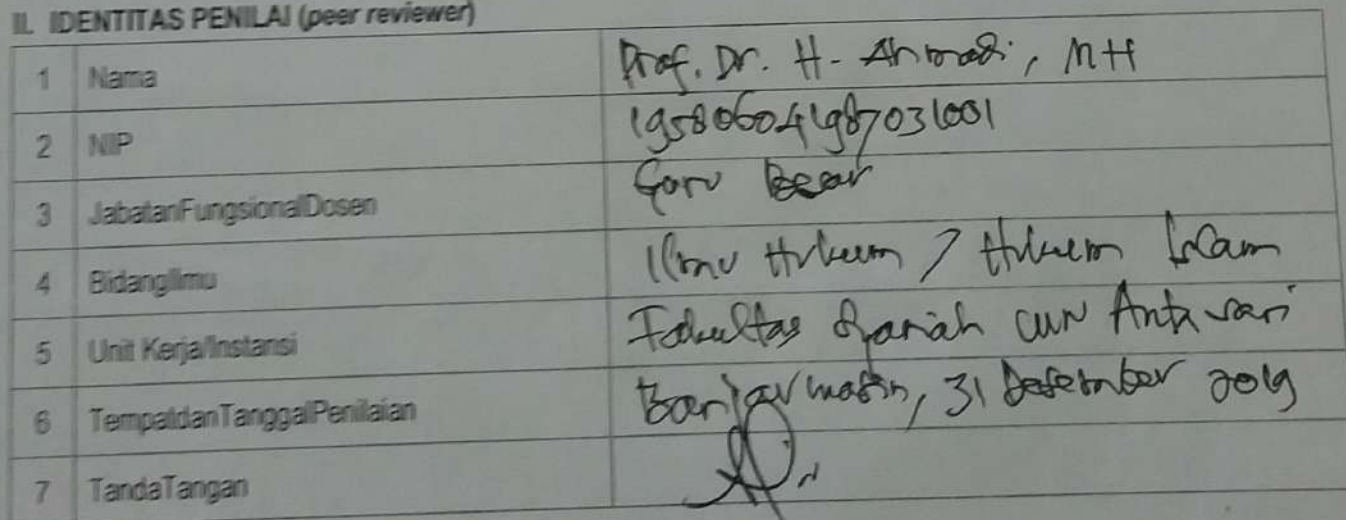 II. IDENTITAS PENILAI (peer reviewer)
1 Nama Prof. Dr. H. Ahmadi, MH
2 NIP 195806041987031001
3 JabatanFungsionalDosen Guru Besar
4 BidangIlmu Ilmu Hukum / Hukum Islam
5 Unit Kerja/Instansi Fakultas Syariah UIN Antasari
6 TempatdanTanggalPenilaian Banjarmasin, 31 Desember 2019
7 TandaTangan